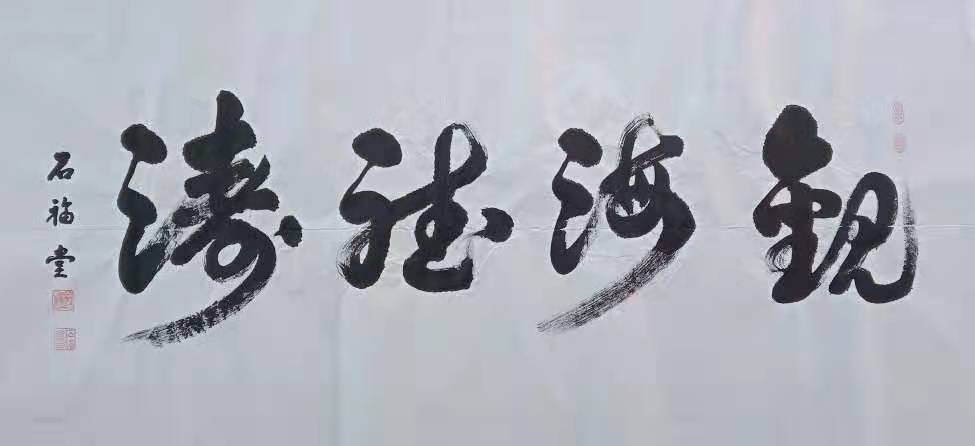 觀海聽濤
石福堂